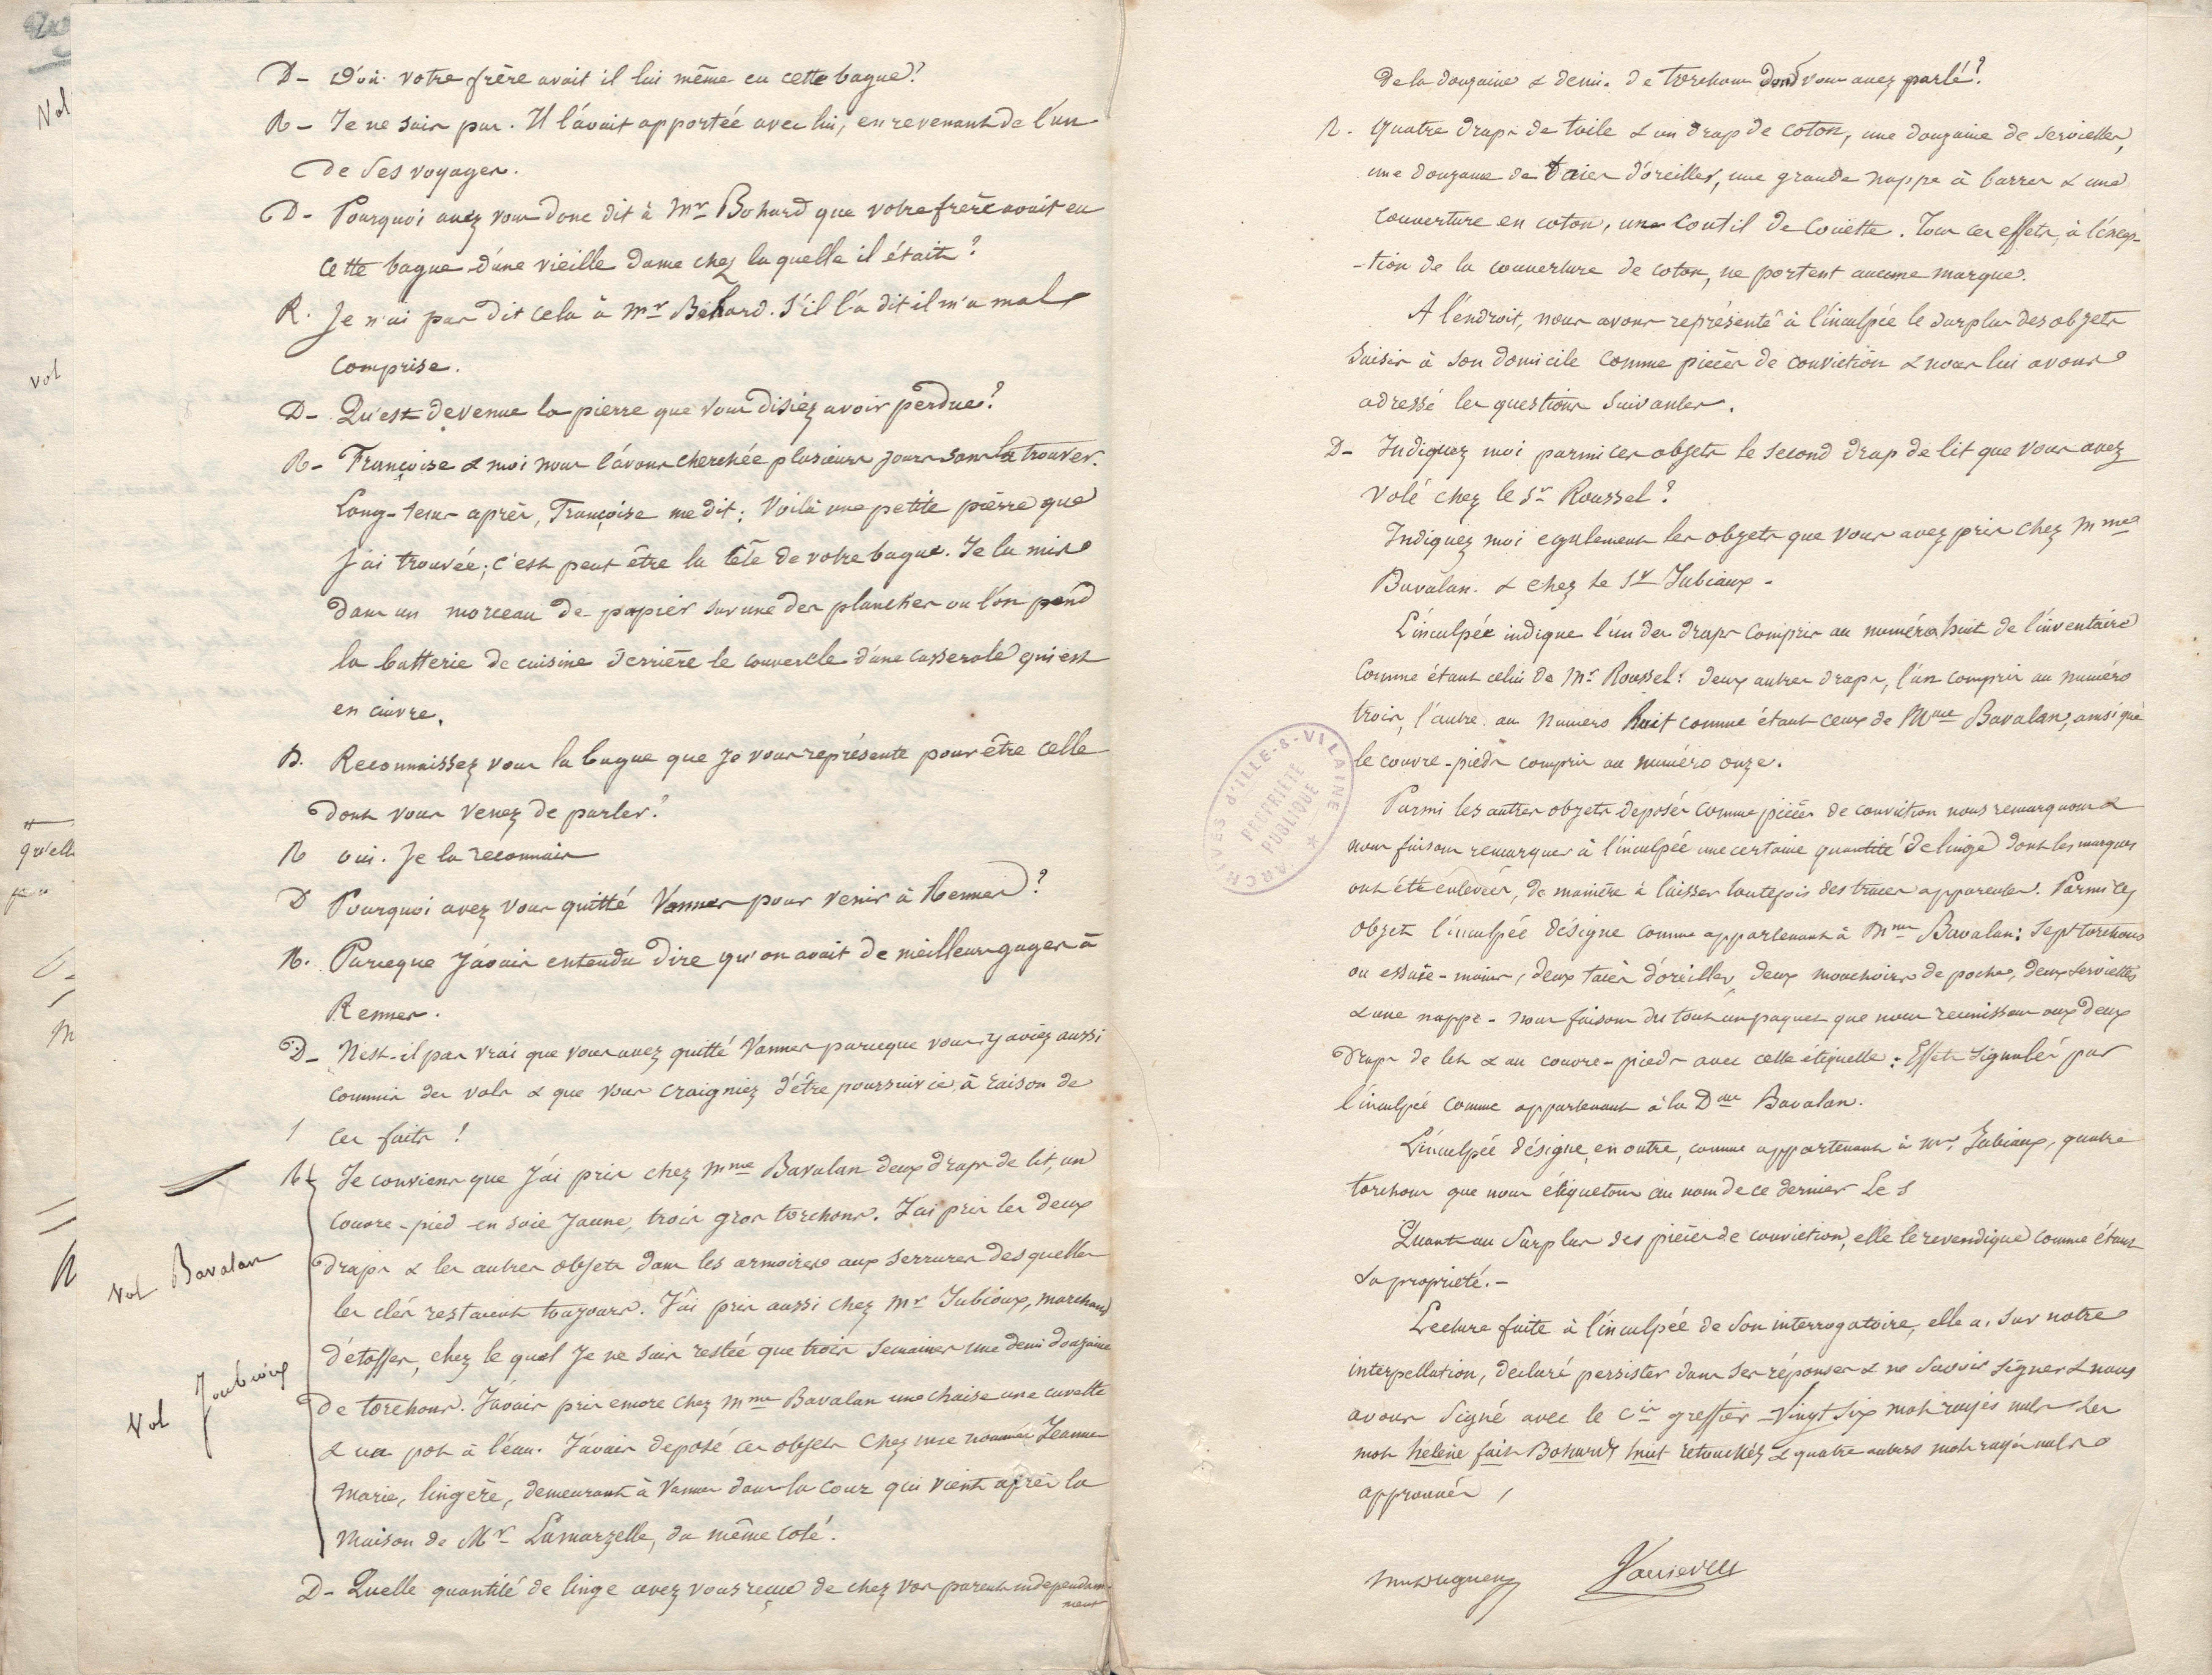 D - D'où votre frère avait il lui même eu cette bague?
R - Je ne sais pas. Il l'avait apportée avec lui, en revenant de l'un
de ses voyages.
D - Pourquoi avez vous donc dit à Mr Bohard que votre frère avait eu
cette bague d'une vieille dame chez laquelle il était?
R. Je n'ai pas dit cela à Mr Béhard. S'il l'a dit il m'a mal
comprise.
D - Qu'est devenue la pierre que vous disiez avoir perdue?
R - Françoise & moi nous l'avons cherchée plusieurs jours sans la trouver.
Long-tems après, Françoise me dit: Voilà une petite pierre que
j'ai trouvée; c'est peut être la tête de votre bague. Je la mis
dans un morceau de papier sur une des planches ou l'on pend
la batterie de cuisine derrière le couvercle d'une casserole qui est
en cuivre.
D. Reconnaissez vous la bague que je vous représente pour être celle
dont vous venez de parler?
R oui. Je la reconnais
D Pourquoi avez vous quitté Vannes pour venir à Rennes?
R. Parceque j'avais entendu dire qu'on avait de meilleurs gages à
Rennes.
D - N'est-il pas vrai que vous avez quitté Vannes parceque vous y aviez aussi
commis des vols & que vous craigniez d'être poursuivie à raison de
ces faits!
R Je conviens que j'ai pris chez Mme Bavalan deux draps de lit, un
couvre-pied en soie jaune, trois gros torchons. J'ai pris les deux
Vol Bavalan
draps & les autres objets dans les armoires aux serrures desquelles
les clés restaient toujours. J'ai pris aussi chez Mr Jubioux, marchand
d'étoffes, chez le quel je ne suis restée que trois semaines une demi douzaine
Vol Joubioux
de torchons. J'avais pris encore chez Mme Bavalan une chaise une cuvette
& un pot à l'eau. J'avais déposé ces objets chez une nommée Jeanne
Marie, lingère, demeurant à Vannes dans la cour qui vient après la
maison de Mr Lamarzelle, du même coté.
D - Quelle quantité de linge avez vous reçue de chez vos parents independam-
ment
de la douzaine & demi. de torchons dont vous avez parlé?
R. Quatre draps de toile & un drap de coton, une douzaine de serviettes,
une douzaine de taies d'oreiller, une grande nappe à barres & une
couverture en coton, une coutil de couette. Tous ces effets, à l'excep-
-tion de la couverture de coton, ne portent aucune marque.
A l'endroit, nous avons représenté à l'inculpée le surplus des objets
saisis à son domicile comme pièces de conviction & nous lui avons
adressé les questions suivantes.
D - Indiquez moi parmi ces objets le second drap de lit que vous avez
volé chez le Sr Roussel?
Indiquez moi egalement les objets que vous avez pris chez Mme
Bavalan. & chez le Sr Jubiaux -
L'inculpée indique l'un des draps compris au numéro huit de l'inventaire
comme étant celui de Mr Roussel: deux autres draps, l'un compris au numéro
trois, l'autre au numéro huit comme étant ceux de Mme Bavalan, ainsi que
le couvre-pieds compris au numéro onze.
Parmi les autres objets déposés comme pièces de conviction nous remarquons &
nous faisons remarquer à l'inculpée une certaine quantité de linge dont les marques
ont été enlevées, de manière à laisser toutefois des traces apparentes. Parmi ces
objets l'inculpée désigne comme appartenant à Mme Bavalan: sept torchons
ou essuie-mains, deux taies d'oreiller, deux mouchoirs de poche, deux serviettes
& une nappe - nous faisons du tout un paquet que nous reunissons aux deux
draps de lit & au couvre-pieds avec cette étiquette: Effets signalés par
l'inculpée comme appartenant à la Dme Bavalan.
L'inculpée désigne, en outre, comme appartenant à Mr Jubiaux, quatre
torchons que nous étiquetons au nom de ce dernier Le S
Quant au surplus des pièces de conviction, elle le revendique comme étant
sa propriété. -
Lecture faite à l'inculpée de son interrogatoire, elle a, sur notre
interpellation, déclaré persister dans ses réponses & ne savoir signer & nous
avons signé avec le Cis greffier - Vingt six mots rayés nuls les
mots hélène fait Bohard huit retouchés & quatre autres mots rayés nuls
approuvés
ARCHIVES D'ILLE-&-VILAINE
PROPRIÉTÉ
PUBLIQUE
Vol
vol
qu'elle